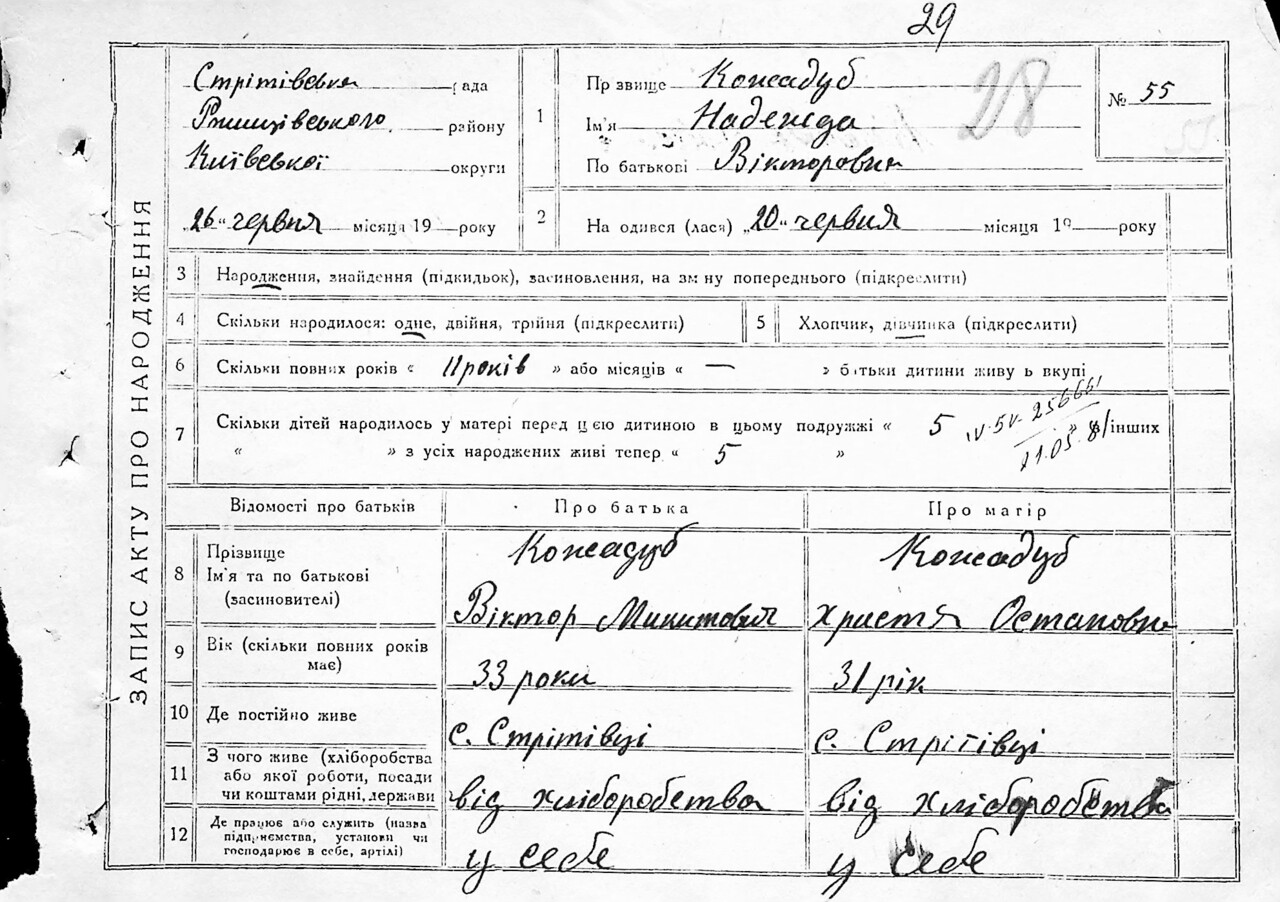 29
28
ЗАПИС АКТУ ПРО НАРОДЖЕННЯ
Стритівська рада
Ржищівського району
Київської округи
„26“ червня місяця 19 року
1 Прізвище Кожадуб
Ім'я Надежда
По батькові Вікторовна
№ 55
2 На одився (лася) „20“ червня місяця 19 року
3 Народження, знайдення (підкидьок), засиновлення, на зм ну попереднього (підкреслити)
4 Скільки народилося: одне, двійня, трійня (підкреслити)
5 Хлопчик, дівчинка (підкреслити)
6 Скільки повних років « 11 років » або місяців « — » батьки дитини живу ь вкупі
7 Скільки дітей народилось у матері перед цією дитиною в цьому подружжі « 5 » в/інших
« » з усіх народжених живі тепер « 5 »
Відомості про батьків Про батька Про матір
8 Прізвище
Ім'я та по батькові
(засиновителі)
Кожадуб
Віктор Микитович
Кожадуб
Христя Остаповна
9 Вік (скільки повних років
має)
33 роки
31 рік
10 Де постійно живе
с. Стрітівці
с. Стрітівці
11 З чого живе (хліборобства
або якої роботи, посади
чи коштами рідні, держави
від хліборобства
від хліборобства
12 Де працює або служить (назва
підприємства, установи чи
господарює в себе, артілі)
у себе
у себе